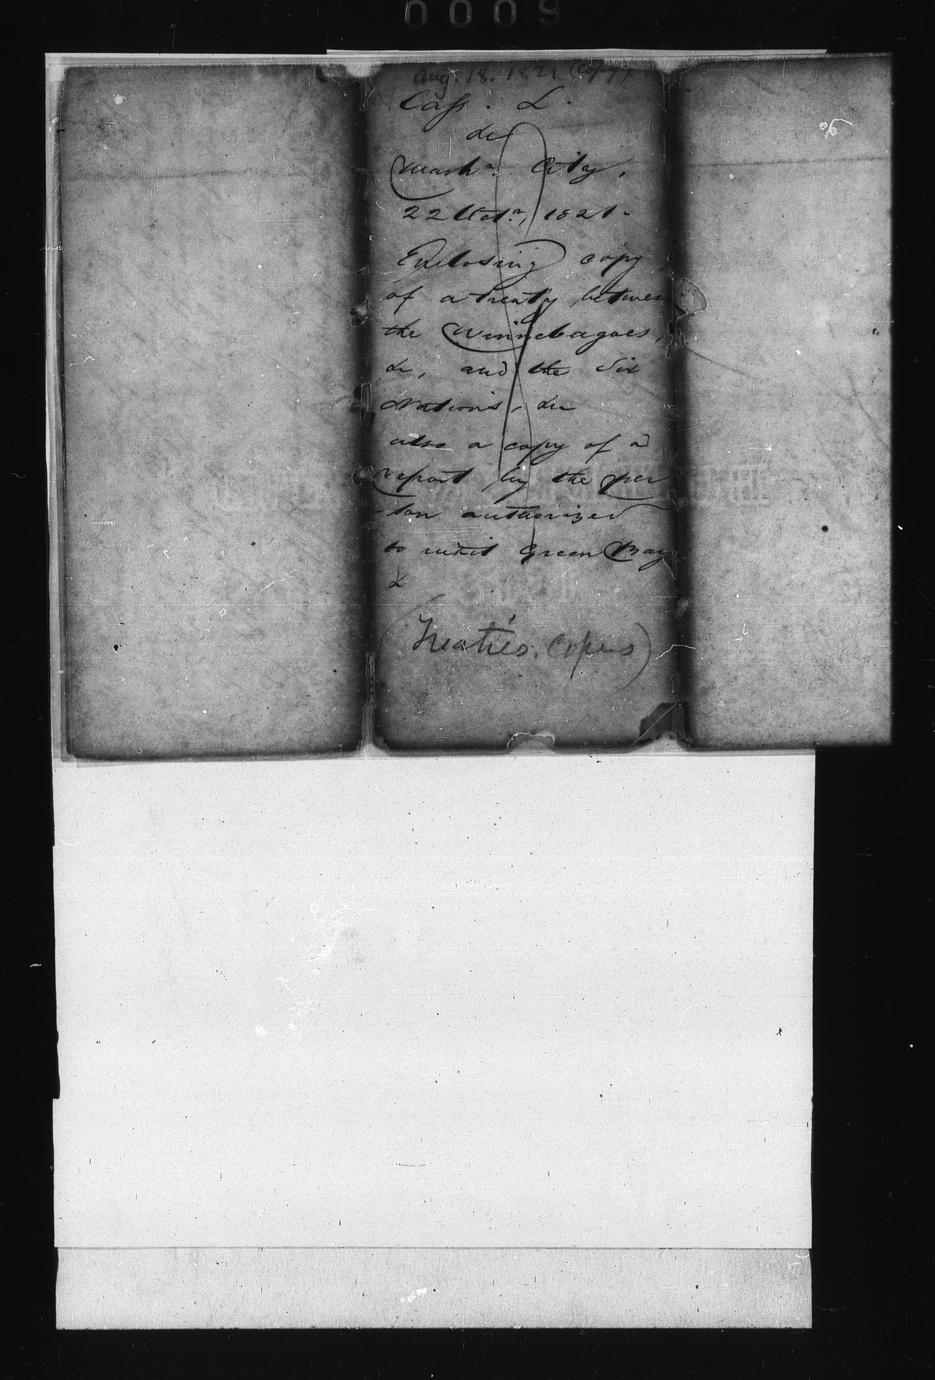 0009
Aug. 18. 1821 (Cpy)
Cass. L.
&c
Wash.n City,
22 Octr, 1821.
Enclosing copy
of a treaty between
the Winnebagoes,
&c, and the Six
Nations, &c
also a copy of a
report by the per
son authorized
to visit Green Bay
&
(Treaties. Copies)